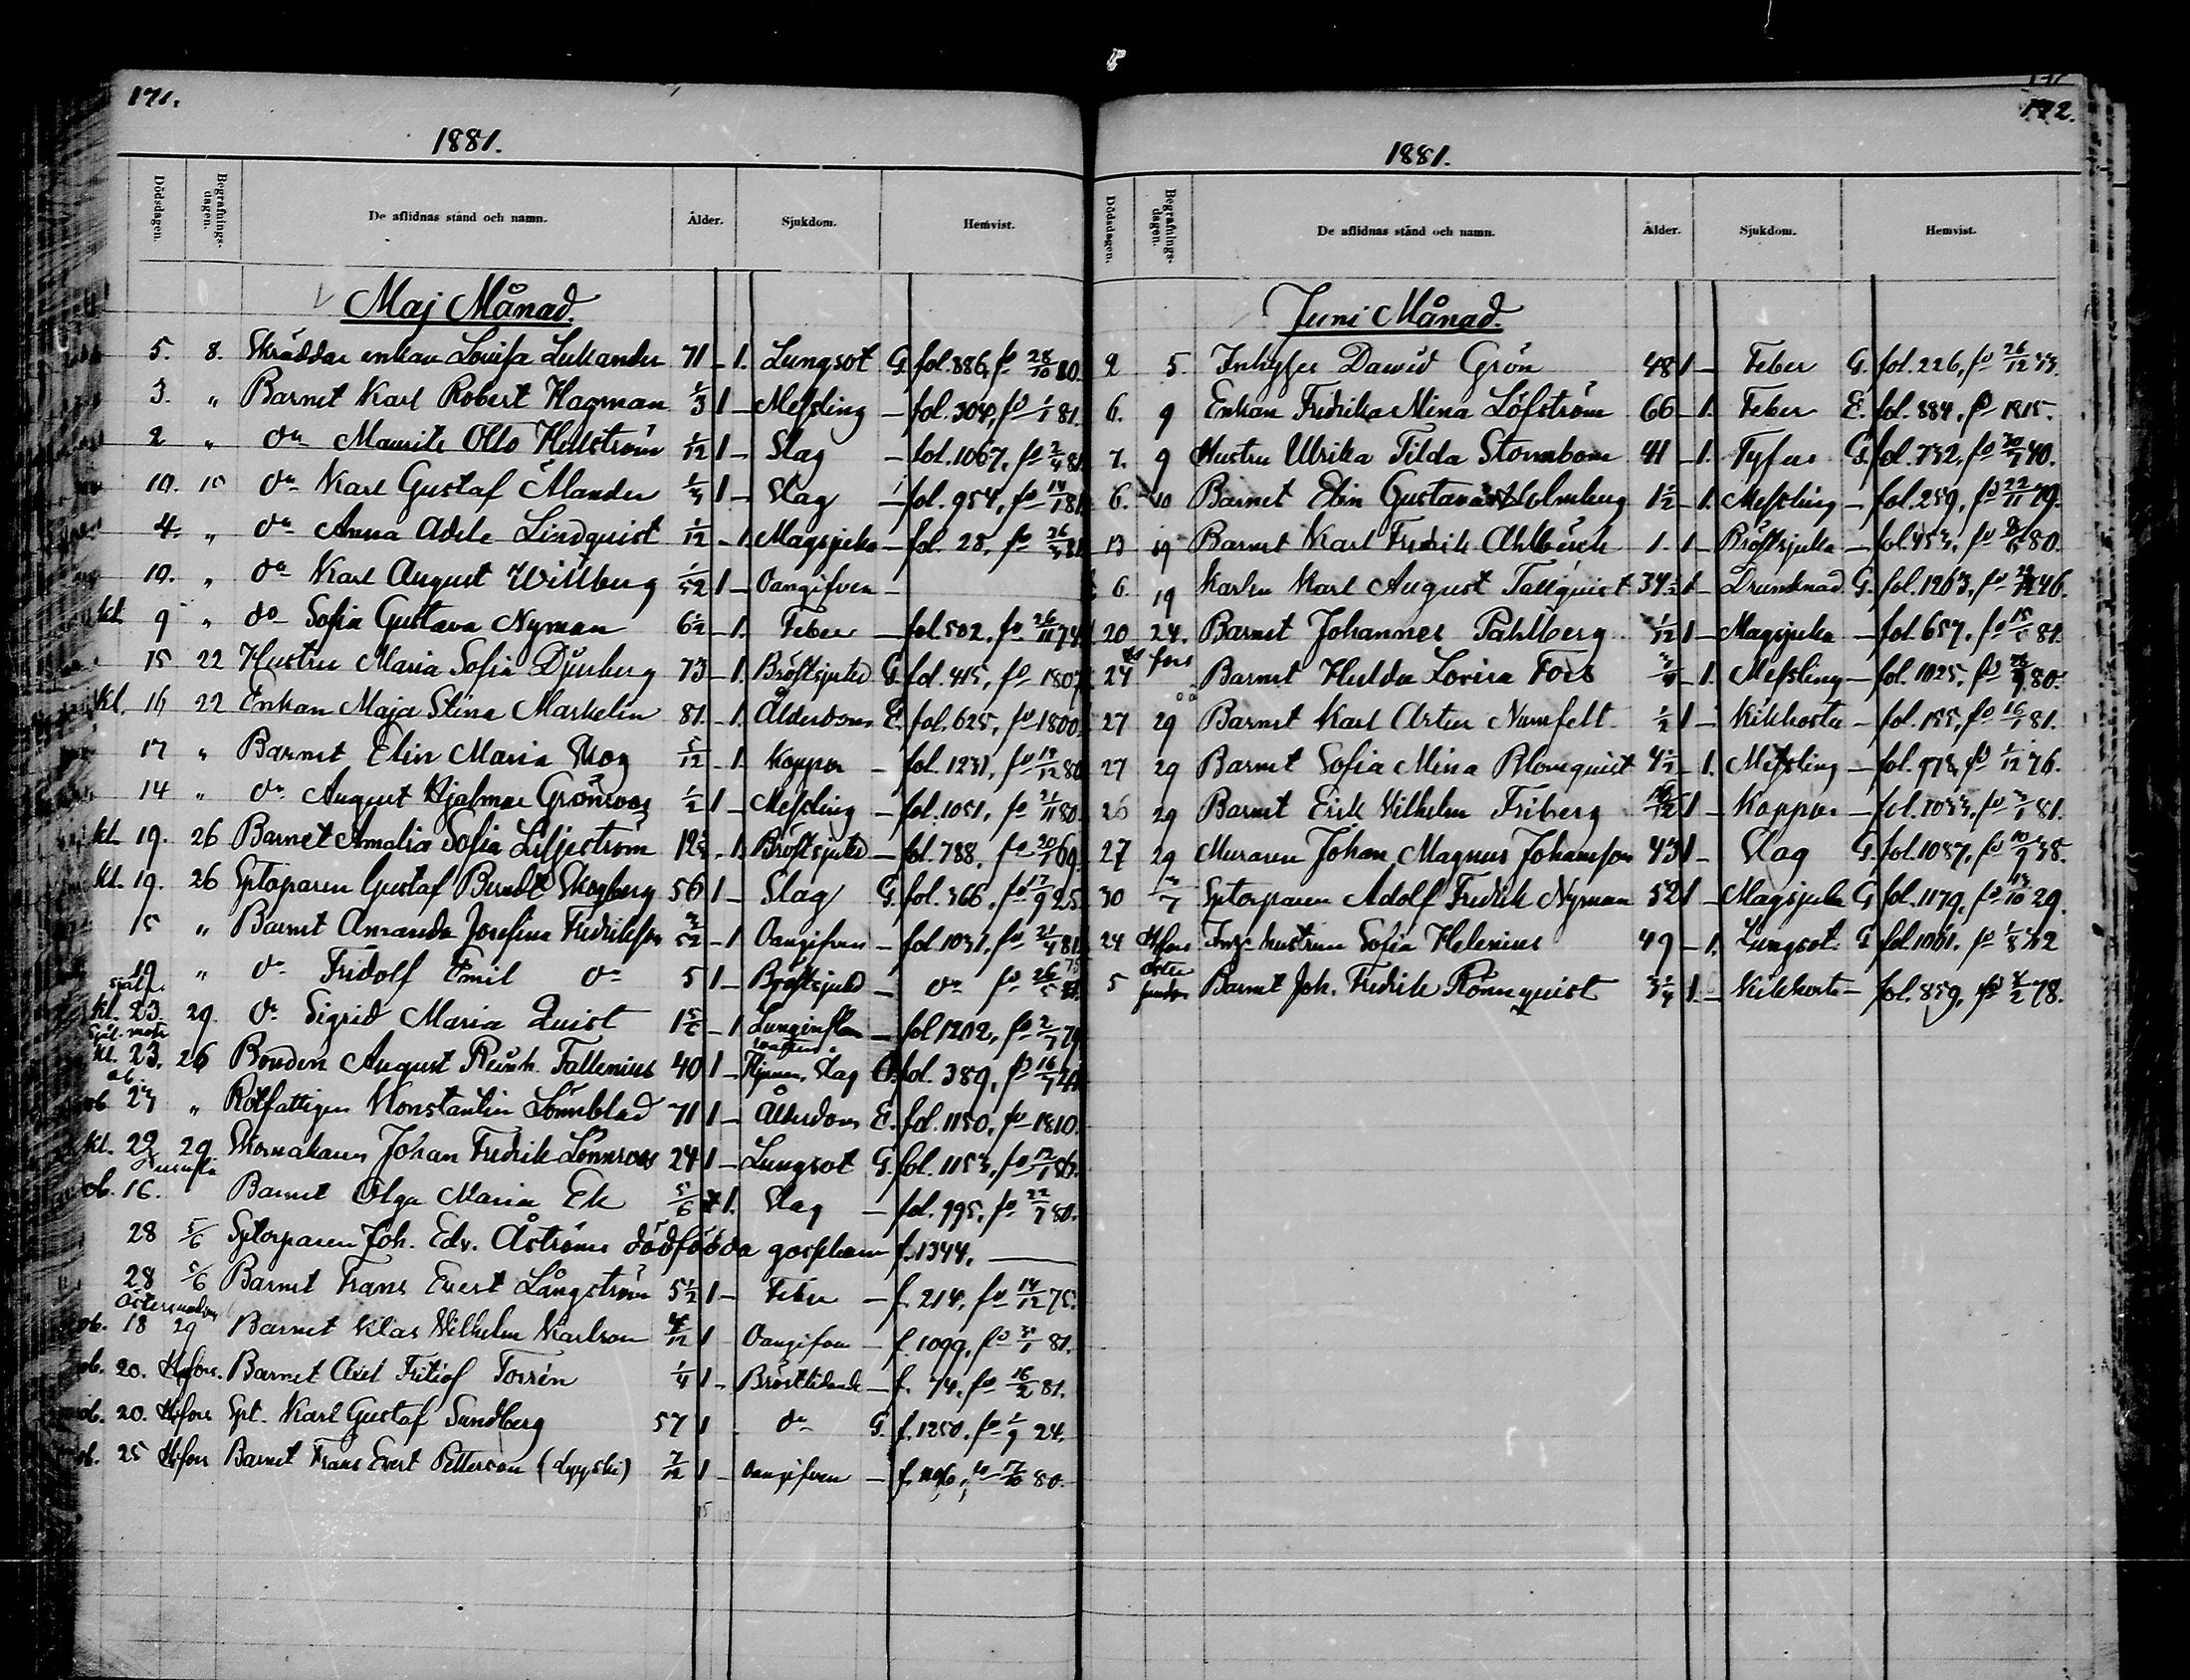 171.
1881.
Dödsdagen. Begrafnings-dagen. De aflidnas stånd och namn. Ålder. Sjukdom. Hemvist.
Maj Månad.
5. 8. Skräddar enkan Lovisa Lukander 71 – 1. Lungsot G. fol. 886, fö 28/10 80.
3. " Barnet Karl Robert Hagman 1/3 1 – Messling – fol. 304, fö 1/1 81.
2 " do Maurits Otto Hellström 1/12 1 – Slag – fol. 1067, fö 2/4 81
10. 15 do Karl Gustaf Ålander 1/3 1 – Slag – fol. 954, fö 14/1 81
4. " do Anna Adele Lindquist 1/12 – 1. Magsjuka – fol. 28, fö 26/3 81
10. " do Karl August Willberg 1/52 1 – Oangifven –
kl. 9 " do Sofia Gustava Nyman 6 1/2 – 1. Feber – fol. 502, fö 26/11 74
15 22 Hustru Maria Sofia Djerberg 73 – 1. Bröstsjukd G. fol. 415, fö 1807
kl. 16 22 Enkan Maja Stina Markelin 81. – 1. Ålderdom E. fol. 625, fö 1800.
17 " Barnet Elin Maria Skog 5/12 – 1. Koppor – fol. 1231, fö 19/12 80
14 " do August Hjalmar Grönroos 1/2 1 – Messling – fol. 1051, fö 21/11 80.
kl. 19. 26 Barnet Amalia Sofia Liljeström 12 1/3 – 1. Bröstsjukd – fol. 788, fö 20/1 69.
kl. 19. 26 Sptorparen Gustaf Berndt Skogberg 56 1 – Slag G. fol. 366, fö 17/9 25
15 " Barnet Amanda Josefina Fredriksson 3/52 – 1 Oangifven – fol. 1031, fö 21/4 81
19 " do Fridolf Emil do 5 1 – Bröstsjukd – do fö 26/5 75
kl. 23. 29. do Sigrid Maria Quist 1 5/6 – 1 Lunginflam – fol 1202, fö 2/7 79
kl. 23. 26 Bonden August Reinh. Fallenius 40 1 – Slag G. fol. 389, fö 16/7 40
ob 27 " Rotfattigen Konstantin Lönnblad 71 1 – Ålderdom E. fol. 1150, fö 1810.
kl. 22 29. Skomakaren Johan Fredrik Lönnroos 24 1 – Lungsot G. fol. 1153, fö 12/1 56.
ob. 16. Barnet Olga Maria Ek 5/6 1. Slag – fol. 995, fö 22/7 80.
28 5/6 Sptorparen Joh. Edv. Åströms dödfödda gossebarn f. 1344.
28 5/6 Barnet Frans Evert Långström 5 1/2 1 – Feber – f. 214, fö 14/12 75.
ob. 18 29 Barnet Klas Vilhelm Karlsson 4/12 1 Oangifven – f. 1099, fö 3/1 81.
ob. 20. Hfors. Barnet Axel Fritiof Torrén 1/4 1 – Bröstlidande – f. 74, fö 16/2 81.
ob. 20. Hfors Spt. Karl Gustaf Sundberg 57 1 do G. f. 1250, fö 1/9 24.
ob. 25 Hfors Barnet Frans Evert Petterson 7/12 1 – Oangifven – fö 17/10 80.
172.
1881.
Dödsdagen. Begrafnings-dagen. De aflidnas stånd och namn. Ålder. Sjukdom. Hemvist.
Juni Månad.
2 5. Inhyses David Grön 48 1 – Feber G. fol. 226, fö 26/12 33.
6. 9 Enkan Fredrika Mina Löfström 66 – 1. Feber E. fol. 884, fö 1815.
7. 9 Hustru Ulrika Tilda Stormbom 41 – 1. Tyfus G. fol. 732, fö 30/7 40.
6. 10 Barnet Elin Gustava Holmberg 1 1/2 – 1. Messling – fol. 259, fö 22/11 79.
13 19 Barnet Karl Fredrik Ahlbäck 1. 1 – Bröstsjuka – fol. 453, fö 80.
6. 19 Karlen Karl August Tallquist 34 1/2 1 – Drunknad G. fol. 1263, fö 46.
20 24. Barnet Johannes Pahlberg 1/12 1 – Magsjuka – fol. 657, fö 15/5 81.
24 Hfors Barnet Hulda Lovisa Fors 3/4 – 1. Messling – fol. 1025, fö 80.
27 29 Barnet Karl Artur Numfelt 1/2 1 – Kikhosta – fol. 155, fö 16/1 81.
27 29 Barnet Sofia Mina Blomquist 4 1/2 – 1. Messling – fol. 978, fö 1/12 76.
26 29 Barnet Erik Vilhelm Friberg 1 – Koppor – fol. 1033, fö 3/1 81.
27 29 Muraren Johan Magnus Johansson 43 1 – Slag G. fol. 1087, fö 10/9 38.
30 3/7 Sptorparen Adolf Fredrik Nyman 52 1 – Magsjuka G. fol. 1179, fö 13/10 29.
24 Hfors Inhs hustrun Sofia Helenius 49 – 1. Lungsot. G. fol. 1061, fö 1/8 32
5 Barnet Joh. Fredrik Rönnquist 3 1/4 1 – Kikhosta – fol. 859, fö 2/2 78.